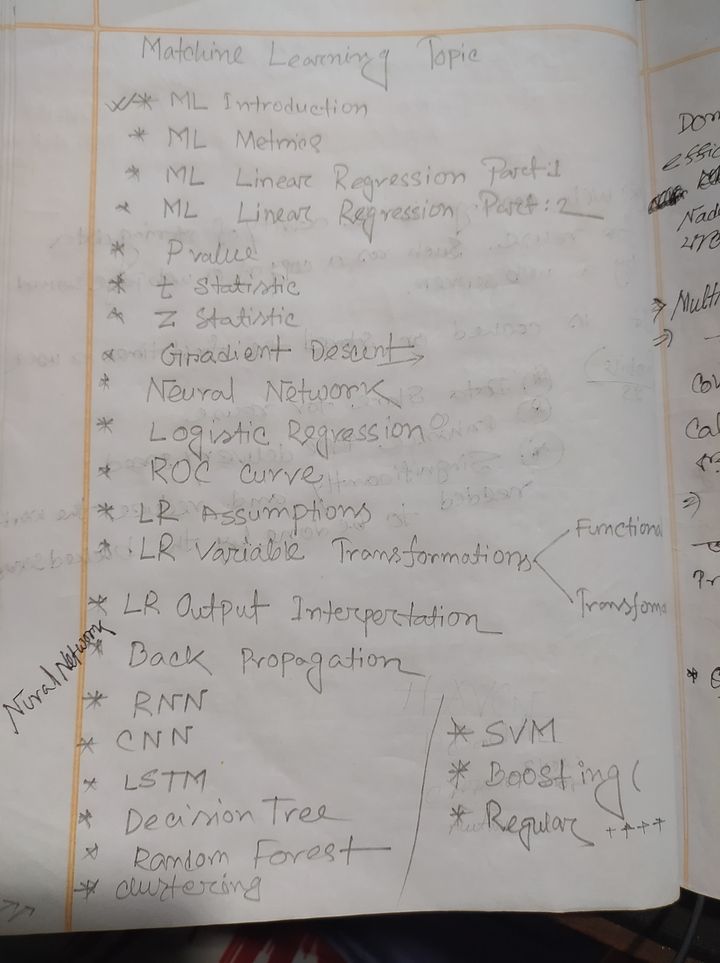 Matchine Learning Topic
* ML Introduction
* ML Metrics
* ML Linear Regression Part:1
* ML Linear Regression Part:2
* P value
* t Statistic
* Z Statistic
* Gradient Descent
* Neural Network
* Logistic Regression
* ROC curve
* LR Assumptions
* LR Variable Transformations
Functional
Transfoma
* LR Output Interpertation
Nural Network
* Back Propagation
* RNN
* CNN
* LSTM
* Decision Tree
* Random Forest
* clustering
* SVM
* Boosting (
* Regular ++++
Multi